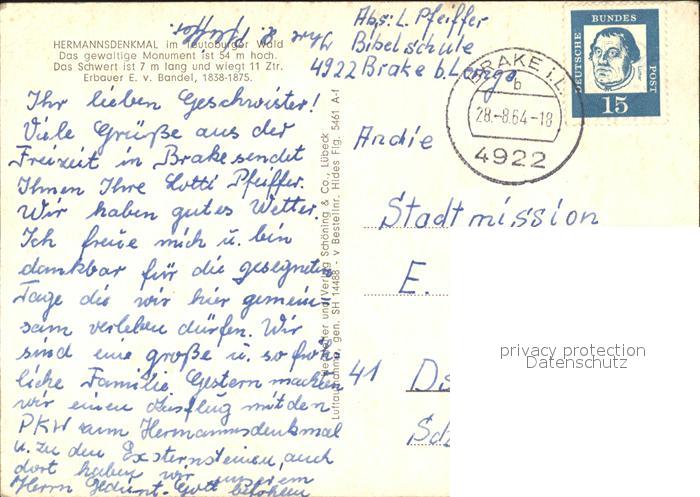 HERMANNSDENKMAL im Teutoburger Wald
Das gewaltige Monument ist 54 m hoch.
Das Schwert ist 7 m lang und wiegt 11 Ztr.
Erbauer E. v. Bandel, 1838-1875.
Ihr lieben Geschwister!
Viele Grüße aus der
Freizeit in Brake sendet
Ihnen Ihre Lotti Pfeiffer.
Wir haben gutes Wetter.
Ich freue mich u. bin
dankbar für die gesegneten
Tage die wir hier gemein-
sam verleben dürfen. Wir
sind eine große u. so fröh-
liche Familie Gestern machten
wir einen Ausflug mit den
PKW zum Hermannsdenkmal
u. zu den Externsteinen, auch
dort haben wir unserem
Herrn gedient. Gott befohlen
Ihre L. Pfeiffer.
Schöning & Co., Lübeck
Luftaufnahme, gen. SH 14488 - v Bestellnr. Hides Flg. 5461 A-f
Abs: L. Pfeiffer
Bibelschule
4922 Brake b. Lemgo
DEUTSCHE BUNDES POST
15
BRAKE i. L.
b
28.-8.64-18
4922
Andie
Stadtmission
E.
41
privacy protection
Datenschutz